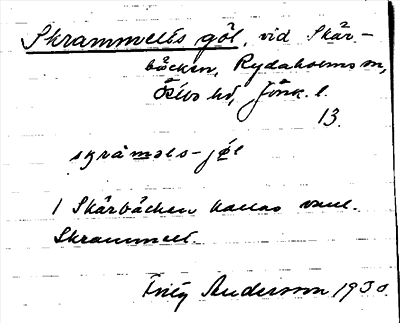 Skrammels göl, vid Skär-
bäcken, Rydaholms sn,
Östbo hd, Jönk. l.
13.
skråməls-jøl
1 Skärbäcken kallas vanl.
Skrammeln.
Fritz Andersson 1930.